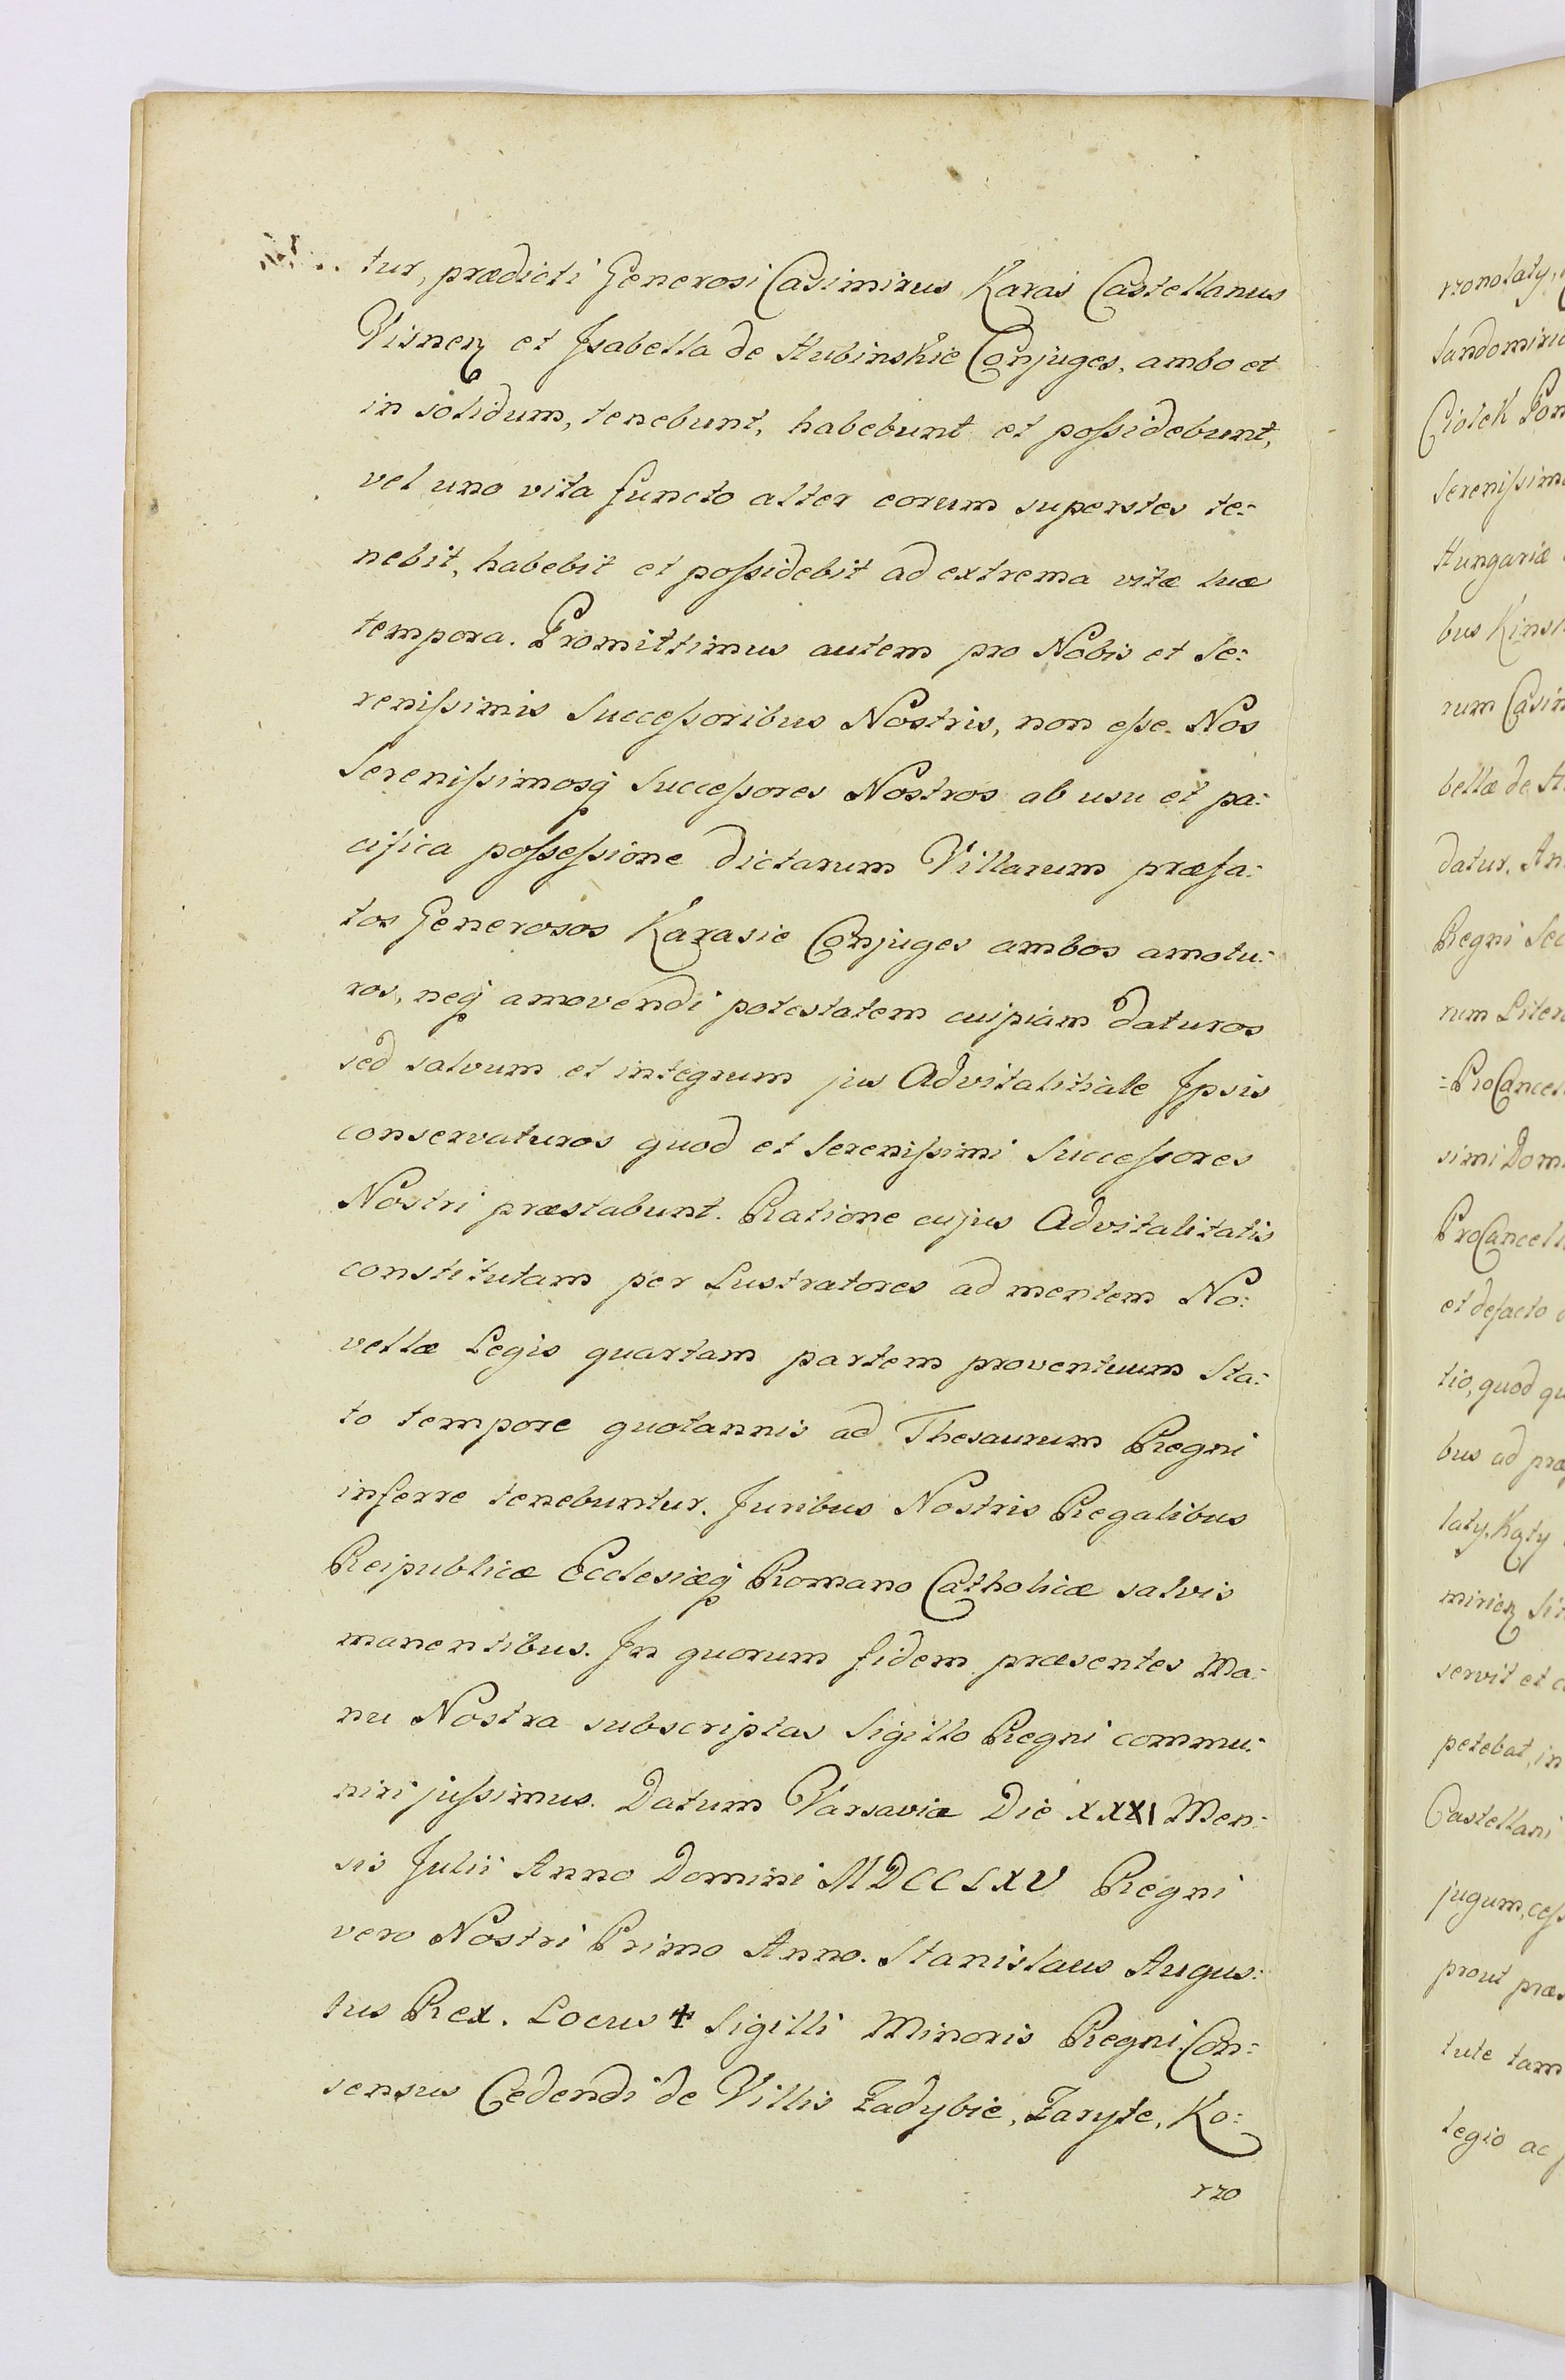 tur, prædicti Generosi Casimirus Karas Castellanus
Visnen et Isabella de Hubinskie Conjuges, ambo et
in solidum, tenebunt, habebunt et poſsidebunt,
vel uno vita functo alter eorum superstes te:
nebit, habebit et poſsidebit ad extrema vitæ suæ
tempora. Promittimus autem pro Nobis et Se:
reniſsimis Succeſsoribus Nostris, non eſse Nos
Sereniſsimosq Succeſsores Nostros ab usu et pa:
cifica poſseſsione dictarum Villarum præfa:
tos Generosos Karasie Conjuges ambos amotu:
ros, neq amovendi potestatem cuipiam daturos
sed salvum et integrum jus Advitalitiale Ipsis
conservaturos quod et Sereniſsimi Succeſsores
Nostri præstabunt. Ratione cujus Advitalitatis
constitutam per Lustratores ad mentem No:
vellæ Legis quartam partem proventuum Sta:
to tempore quotannis ad Thesaurum Regni
inferre tenebuntur. Juribus Nostris Regalibus
Reipublicæ Ecclesiæq Romano Catholicæ salvis
manentibus. In quorum fidem præsentes Ma:
nu Nostra subscriptas Sigillo Regni commu:
niri juſsimus. Datum Varsaviæ Die XXXI Men:
sis Julii Anno Domini MDCCLXV Regni
vero Nostri Primo Anno. Stanislaus Augus:
tus Rex. Locus ✝ Sigilli Minoris Regni. Con:
sensus Cedendi de Villis Zadybie, Zaryte, Ko:
rzo
rzonolaty,
Sandomiri
Ciolek Pon
Sereniſsim
Hungariæ
bus Kinsk
rum Casim
bellæ de H
datur. An
Regni Sec
rum Liter
=ProCancel
simi Dom
ProCancell
et defacto
tio, quod qu
bus ad præ
laty, Kąty
mirien
servit et
petebat, in
Castellani
jugum, ceſs
prout præ
tute tam
legio ac